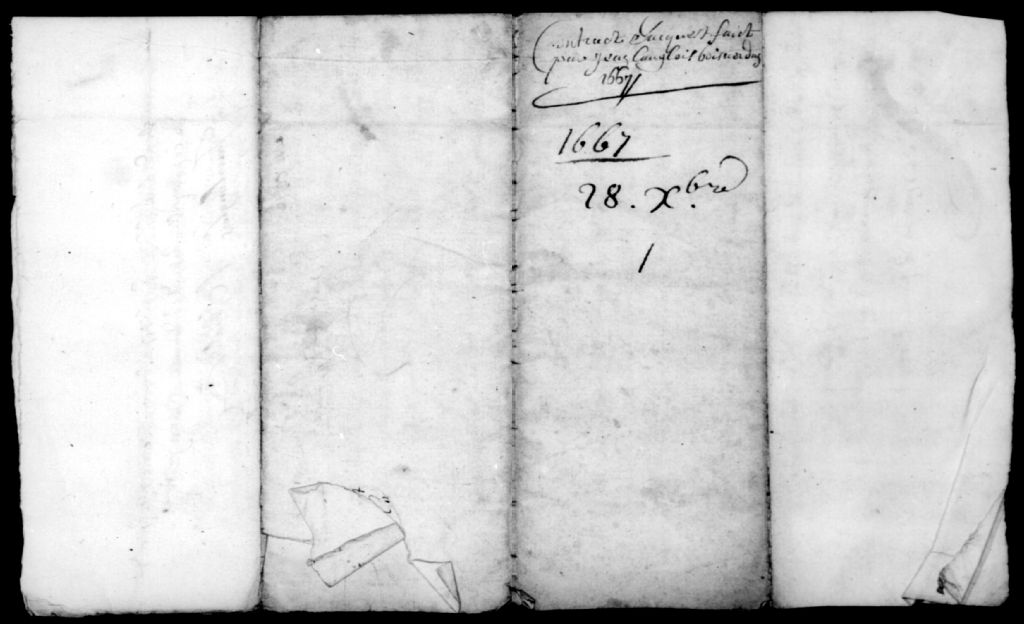 Contract d'acquest faict
par Jean Langlois boisverdun
1667
1667
28. Xbre
1